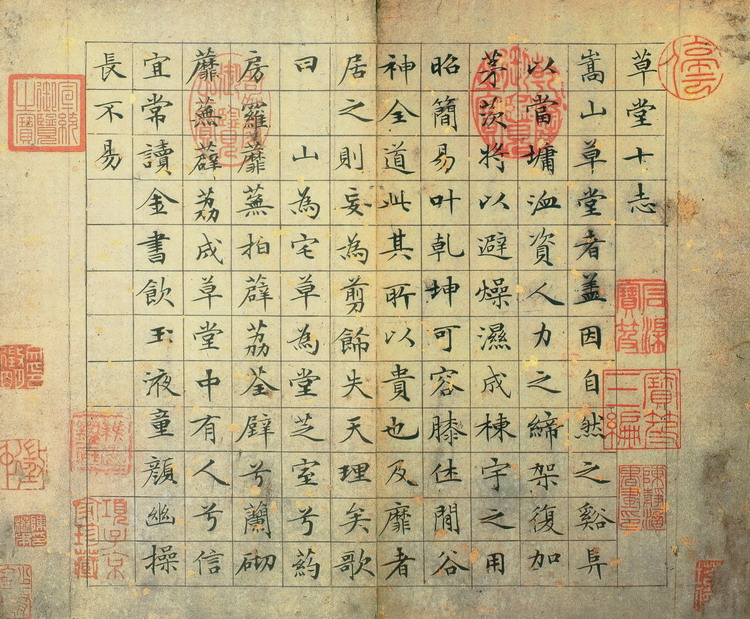 草堂十志
嵩山草堂者盖因自然之谿阜
以當墉洫資人力之締架復加
茅茨將以避燥濕成棟宇之用
昭簡易叶乾坤可容膝休閒谷
神全道此其所以貴也及靡者
居之則妄為剪餙失天理矣歌
曰 山為宅草為堂芝室兮葯
房羅蘼蕪拍薜荔荃壁兮蘭砌
蘼蕪薜荔成草堂中有人兮信
宜常讀金書飲玉液童顏幽操
長不易
石渠寶笈
寶笈三編
宣統御覽之寶
項子京家珍藏